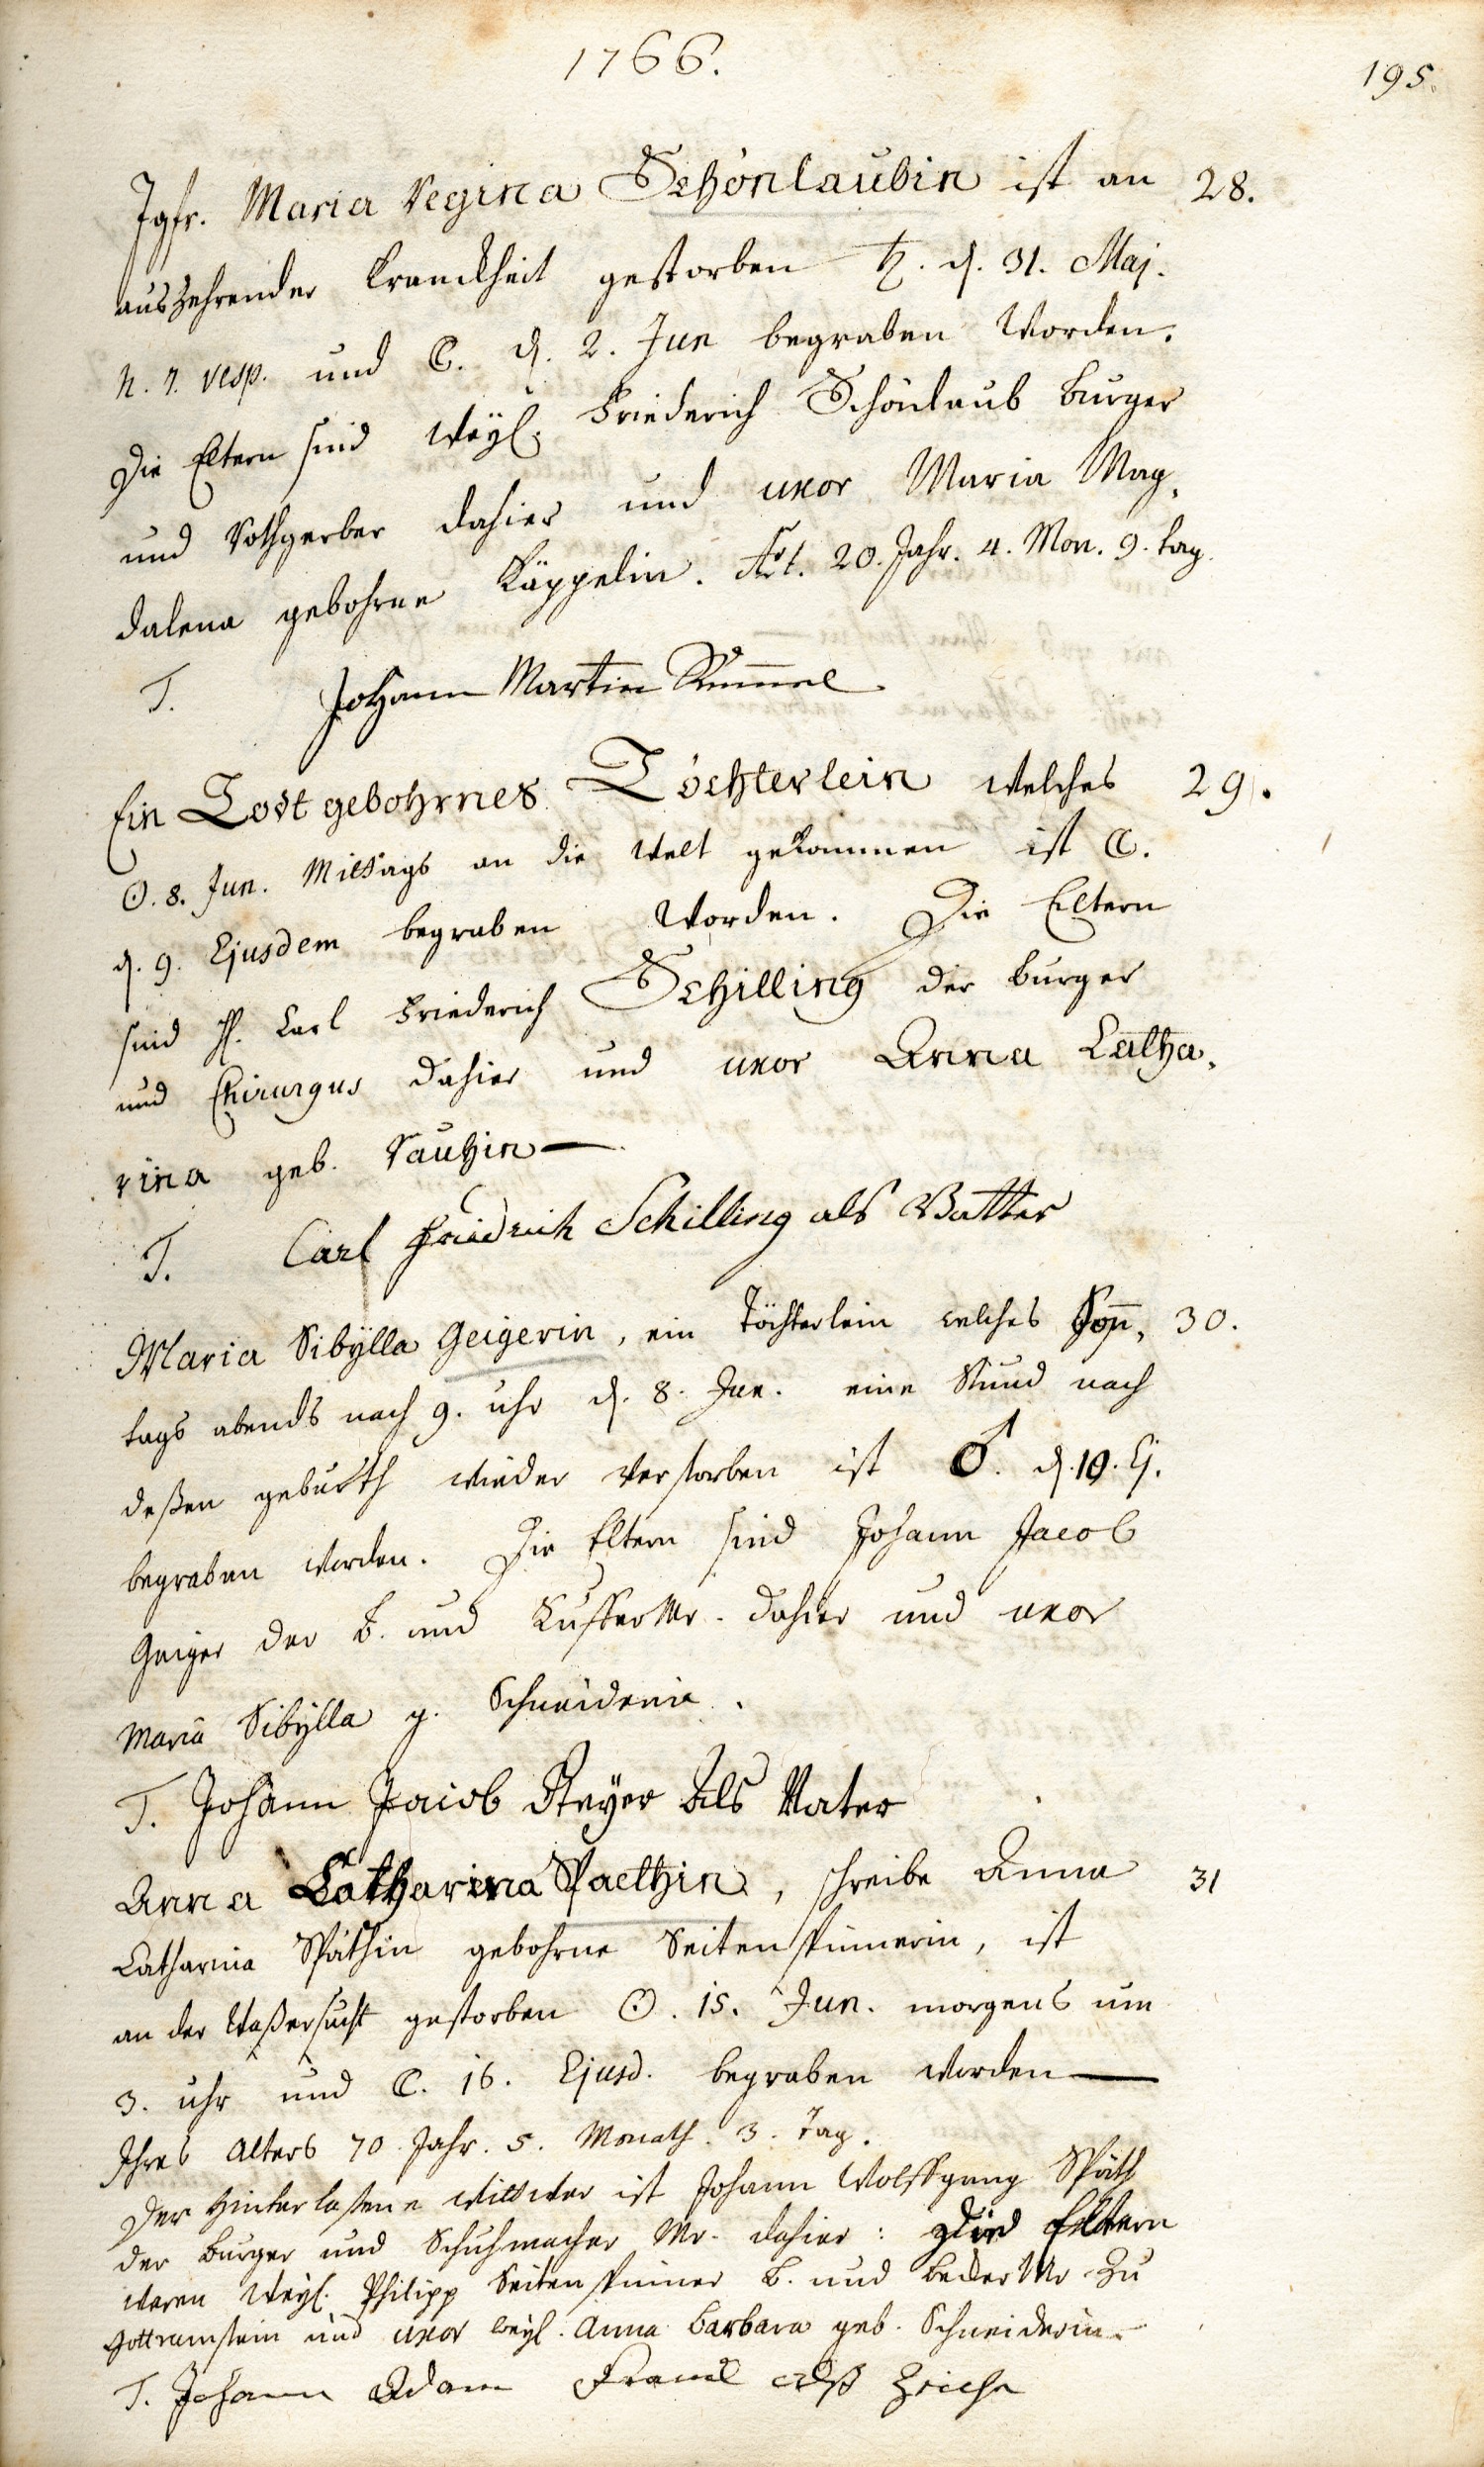 1766.
195.
Jgfr. Maria Regina Schönlaubin ist an 28.
auszehrender Kranckheit gestorben ♄. d. 31. Maj.
h. 7. vesp. und ☾. d. 2. Jun begraben worden.
Die Eltern sind weyl. Friederich Schönlaub burger
und Rothgerber dahier und uxor Maria Mag,
dalena gebohrne Käppelin. Aet. 20. Jahr. 4. Mon. 9. tag.
T. Johann Martin
Ein Todt gebohrnes Töchterlein welches 29.
☉. 8. Jun. Mittags an die Welt gekommen ist ☾.
d. 9. Ejusdem begraben worden. Die Eltern
sind H. Carl Friederich Schilling der burger
und Chirurgus dahier und uxor Anna Catha,
rina geb. Rauhin —
T. Carl Friedrich Schilling als Vatter
Maria Sibylla Geigerin, ein Töchterlein welches Son̄, 30.
tags abends nach 9. uhr d. 8. Jun. eine Stund nach
deßen geburth wieder verstorben ist ♂. d. 10. Ej.
begraben worden. Die Eltern sind Johann Jacob
Geiger der B. und Kuffer Mr. dahier und uxor
Maria Sibylla g. Schneiderin.
T. Johann Jacob als Vater
Anna Catharina Spaethin, schreibe Anna 31
Catharina Späthin gebohrne Seitenspinnerin, ist
an der Waßersucht gestorben ☉. 15. Jun. morgens um
3. uhr und ☾. 16. Ejusd. begraben worden —
Ihres Alters 70. Jahr. 5. Monath. 3. Tag.
Der Hinterlaßene Wittwer ist Johann Wolffgang Späth
der burger und Schuhmacher Mr. dahier: Die Eltern
waren weyl. Philipp Seitenspinner B. und Becker Mr zu
und uxor weyl. Anna Barbara geb. Schneiderin.
T. Johann Adam alß